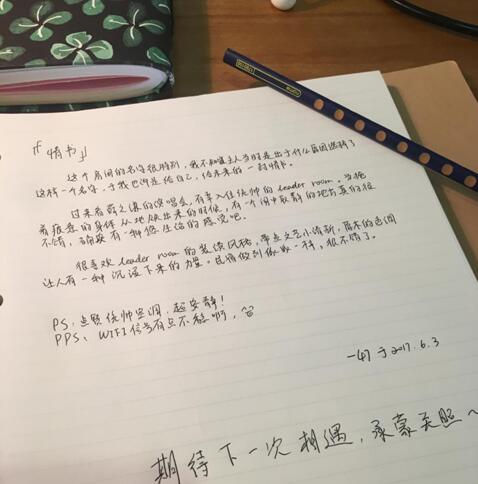 「情书」
这个房间的名字很特别，我不知道主人当时是出于什么原因选择了
这样一个名字，于我也许是给自己，给未来的一封情书。
过来看薛之谦的演唱会，有幸入住优帅的 leader room。当拖
着疲惫的身体从地铁出来的时候，有一个闹中取静的地方真的很
不错，确实有一种恋
很喜欢 leader room 的装修风格，带点文艺小清新，原木的色调
让人有一种沉浸下来的力量。民宿做到像家一样，很不错了。
PS：点赞优帅空调，超安静！
PPS、WIFI信号有点不稳啊，
一47 于 2017.6.3
期待下一次相遇，承蒙关照～